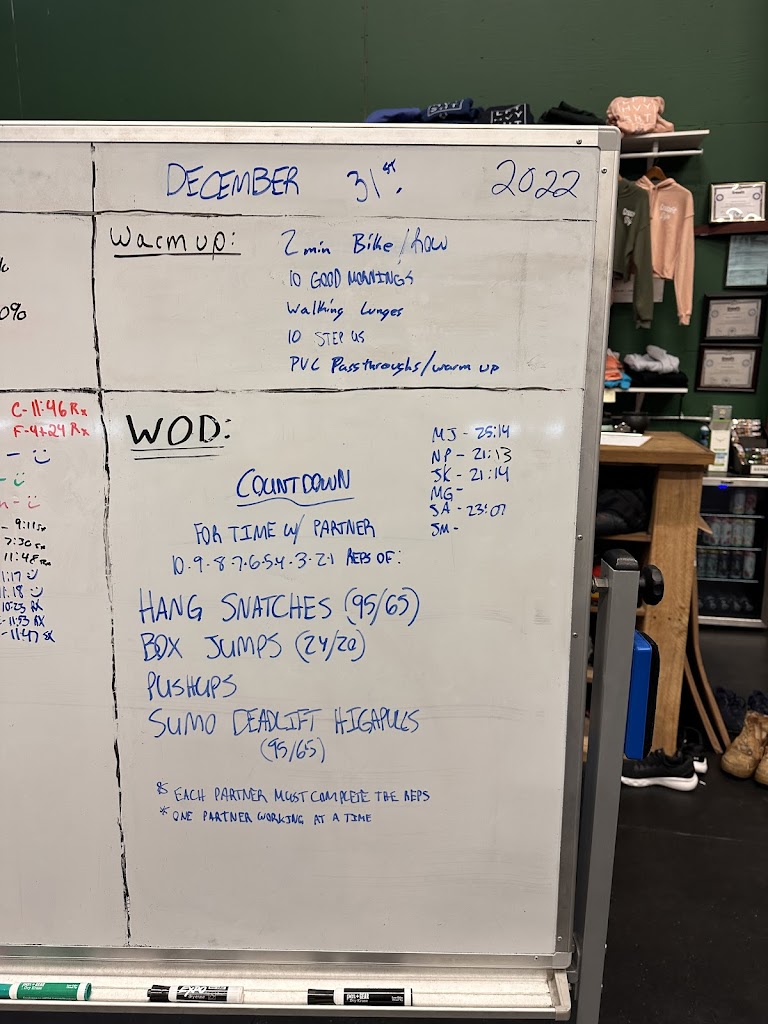 DECEMBER 31ST. 2022
Warm up:
2 min Bike/Row
10 GOOD MORNINGS
Walking Lunges
10 STEP US
PVC Passthroughs/warm up
0%
C-11:46 Rx
F-4+24 Rx
- 9:11
7:30
11:48 Rx
1:17
1:18
10:25 RX
-11:53 RX
-11:47 SX
WOD:
MJ - 25:14
NP - 21:13
JK - 21:14
MG -
SA - 23:07
JM -
COUNTDOWN
FOR TIME W/ PARTNER
10·9·8·7·6·5·4·3·2·1 REPS OF:
HANG SNATCHES (95/65)
BOX JUMPS (24/20)
PUSHUPS
SUMO DEADLIFT HIGHPULLS
(95/65)
* EACH PARTNER MUST COMPLETE THE REPS
* ONE PARTNER WORKING AT A TIME
EXPO